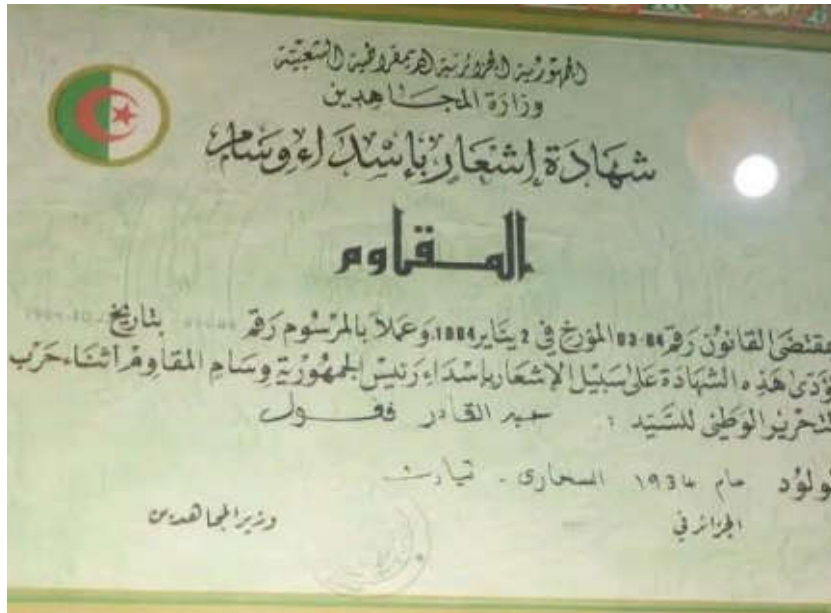 الجمهورية الجزائرية الديمقراطية الشعبية
وزارة المجاهدين
شهادة إشعار بإسداء وسام
المقاوم
بمقتضى القانون رقم 84-02 المؤرخ في 2 يناير 1984، وعملا بالمرسوم رقم بتاريخ
تؤدى هذه الشهادة على سبيل الإشعار بإسداء رئيس الجمهورية وسام المقاوم أثناء حرب
التحرير الوطني للسيد : عبد القادر فغول
المولود عام 1934 السحاري - تيارت
الجزائر في
وزير المجاهدين